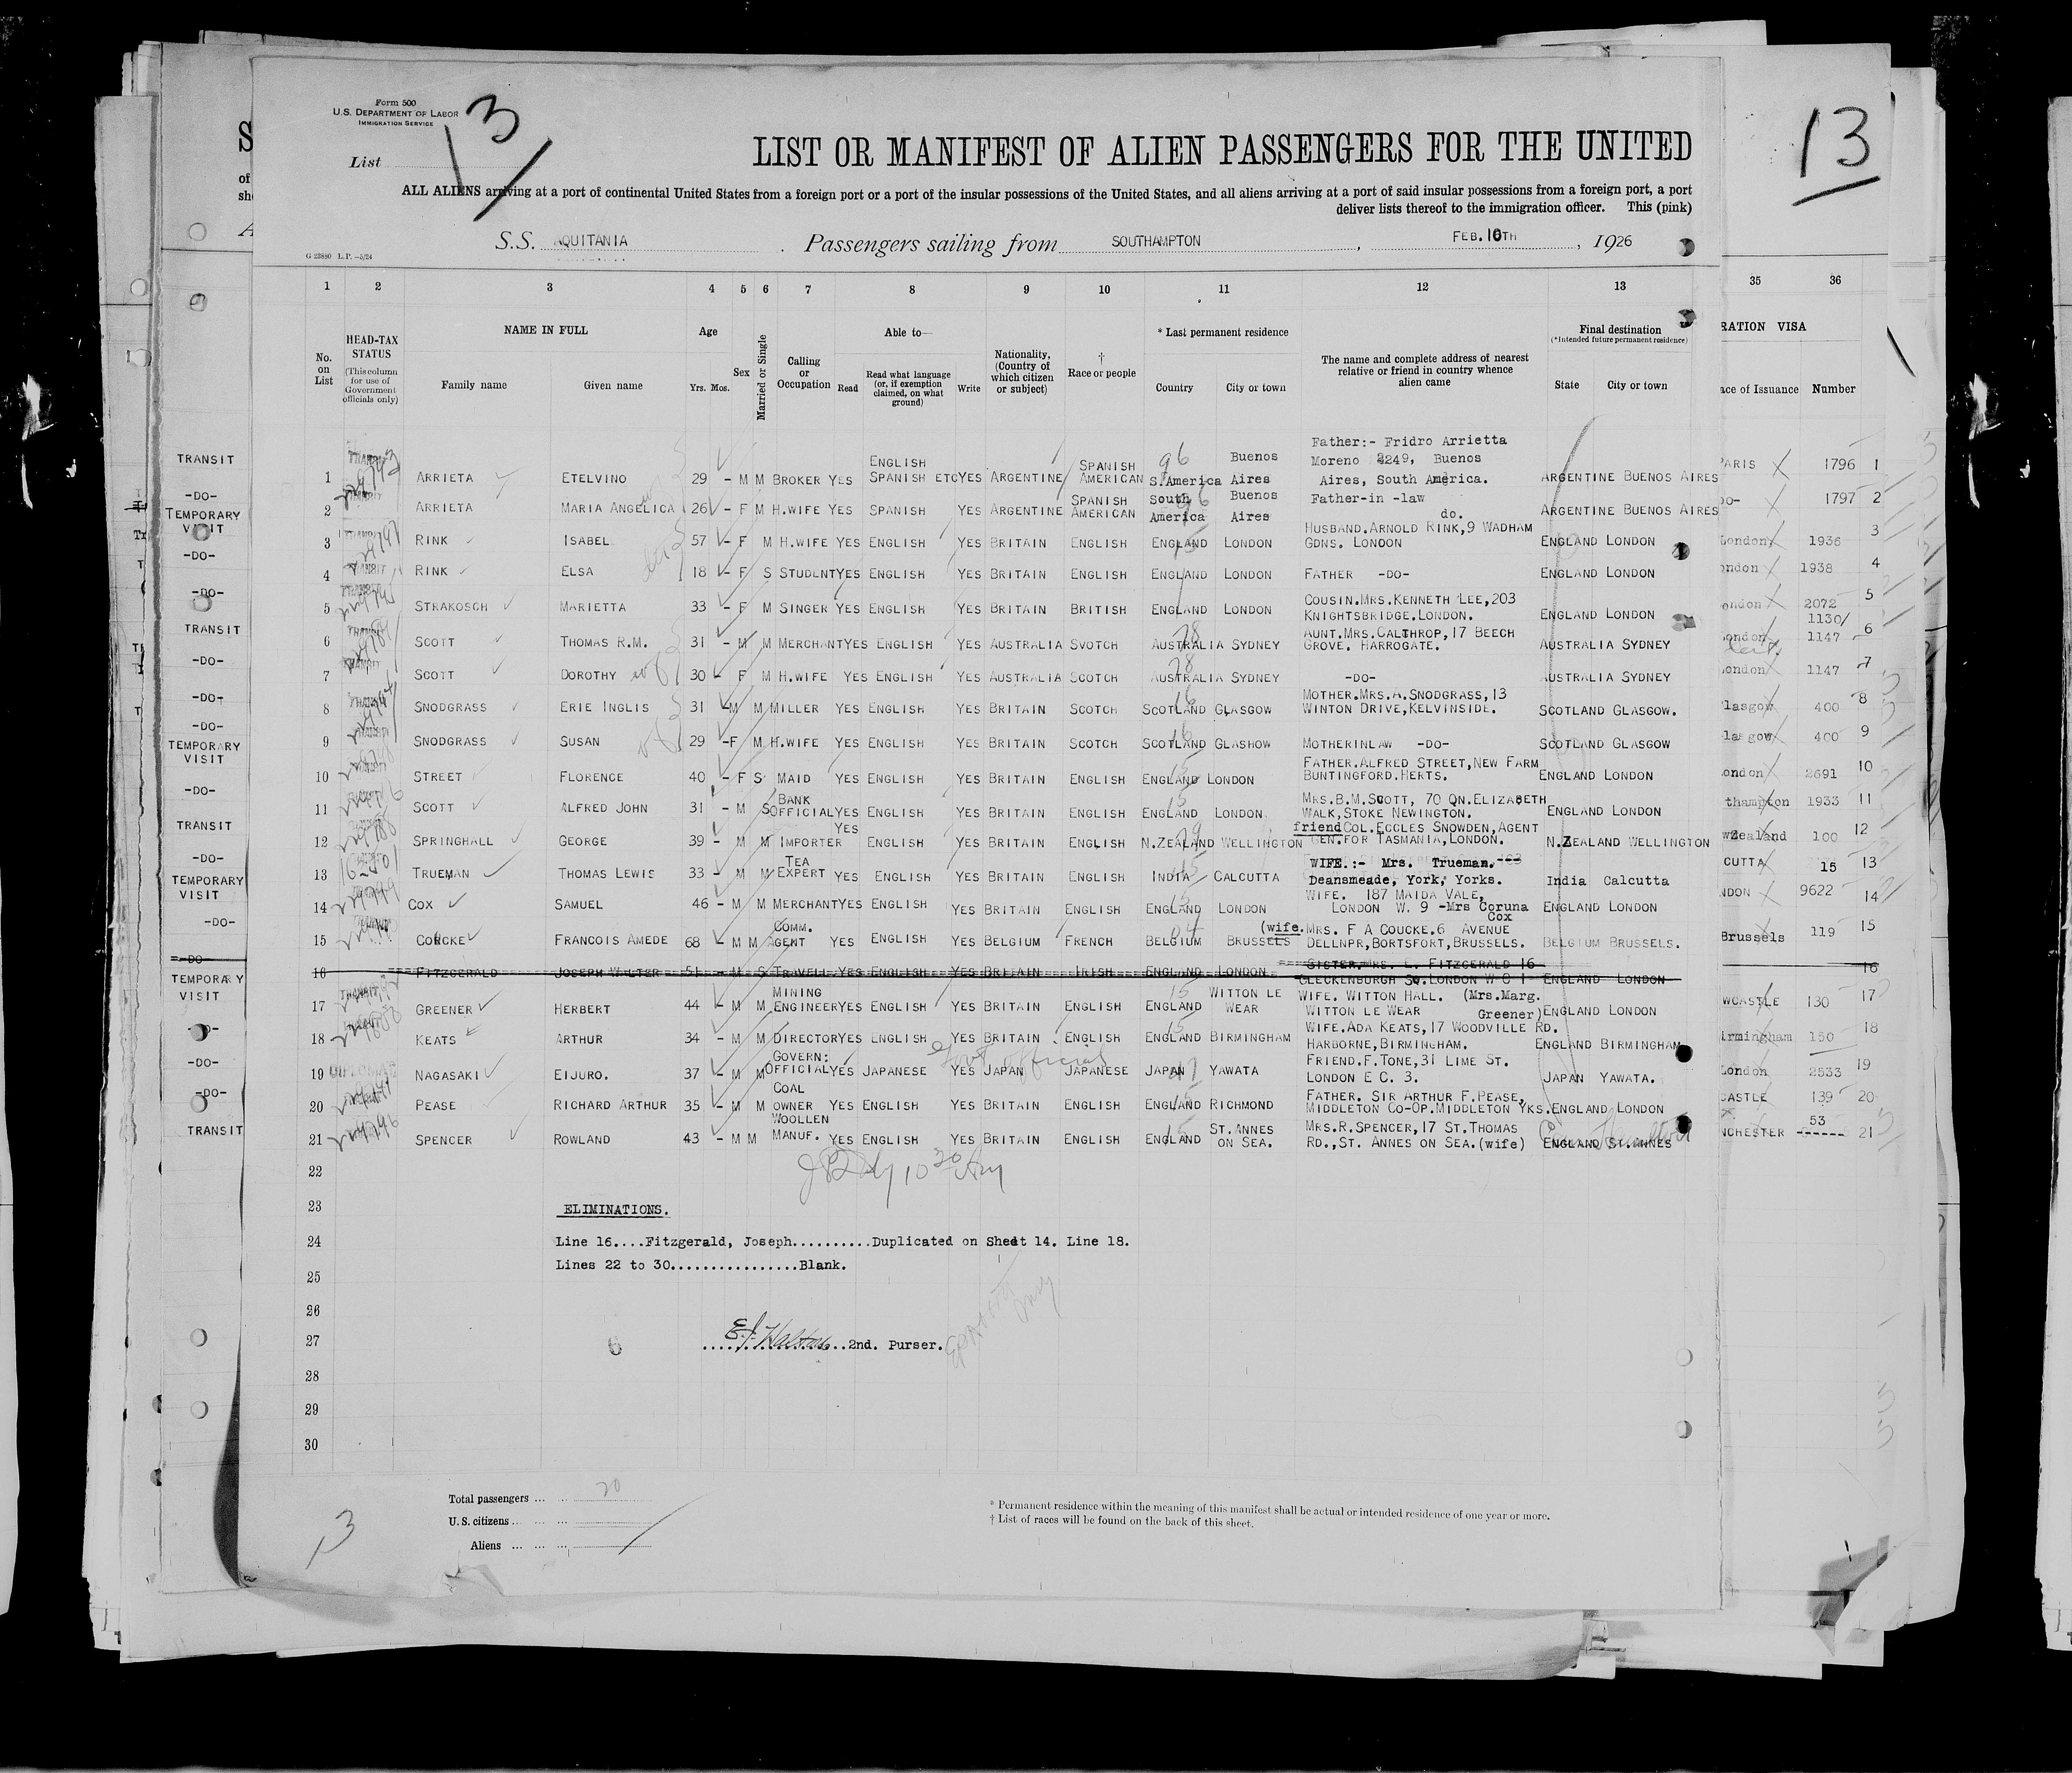 Form 500
U.S. DEPARTMENT OF LABOR
IMMIGRATION SERVICE
13
List
LIST OR MANIFEST OF ALIEN PASSENGERS FOR THE UNITED
13
ALL ALIENS arriving at a port of continental United States from a foreign port or a port of the insular possessions of the United States, and all aliens arriving at a port of said insular possessions from a foreign port, a port
deliver lists thereof to the immigration officer. This (pink)
S.S. AQUITANIA . Passengers sailing from SOUTHAMPTON , FEB. 10TH , 1926
G 23880 L.P.—5/24
1 2 3 4 5 6 7 8 9 10 11 12 13 35 36
No. on List
HEAD-TAX STATUS
(This column for use of Government officials only)
NAME IN FULL
Family name Given name
Age
Yrs. Mos.
Sex
Married or Single
Calling or Occupation
Able to—
Read
Read what language (or, if exemption claimed, on what ground)
Write
Nationality, (Country of which citizen or subject)
† Race or people
* Last permanent residence
Country City or town
The name and complete address of nearest relative or friend in country whence alien came
Final destination
(*Intended future permanent residence)
State City or town
RATION VISA
ace of Issuance Number
TRANSIT 1 ARRIETA ETELVINO 29 - M M BROKER YES ENGLISH SPANISH ETC YES ARGENTINE SPANISH AMERICAN S.America Buenos Aires Father:- Fridro Arrietta Moreno 2249, Buenos Aires, South America. ARGENTINE BUENOS AIRES PARIS 1796 1
-DO- 2 ARRIETA MARIA ANGELICA 26 - F M H.WIFE YES SPANISH YES ARGENTINE SPANISH AMERICAN South America Buenos Aires Father-in -law do. ARGENTINE BUENOS AIRES DO- 1797 2
TEMPORARY VISIT 3 RINK ISABEL 57 - F M H.WIFE YES ENGLISH YES BRITAIN ENGLISH ENGLAND LONDON HUSBAND.ARNOLD RINK,9 WADHAM GDNS. LONDON ENGLAND LONDON London 1936 3
-DO- 4 RINK ELSA 18 - F S STUDENT YES ENGLISH YES BRITAIN ENGLISH ENGLAND LONDON FATHER -DO- ENGLAND LONDON ondon 1938 4
-DO- 5 STRAKOSCH MARIETTA 33 - F M SINGER YES ENGLISH YES BRITAIN BRITISH ENGLAND LONDON COUSIN.MRS.KENNETH LEE,203 KNIGHTSBRIDGE.LONDON. ENGLAND LONDON ondon 2072 5
TRANSIT 6 SCOTT THOMAS R.M. 31 - M M MERCHANT YES ENGLISH YES AUSTRALIA SVOTCH AUSTRALIA SYDNEY AUNT.MRS.CALTHROP,17 BEECH GROVE. HARROGATE. AUSTRALIA SYDNEY London 1130/ 1147 6
-DO- 7 SCOTT DOROTHY 30 - F M H.WIFE YES ENGLISH YES AUSTRALIA SCOTCH AUSTRALIA SYDNEY -DO- AUSTRALIA SYDNEY London 1147 7
-DO- 8 SNODGRASS ERIE INGLIS 31 - M M MILLER YES ENGLISH YES BRITAIN SCOTCH SCOTLAND GLASGOW MOTHER.MRS.A.SNODGRASS,13 WINTON DRIVE,KELVINSIDE. SCOTLAND GLASGOW. lasgow 400 8
-DO- 9 SNODGRASS SUSAN 29 - F M H.WIFE YES ENGLISH YES BRITAIN SCOTCH SCOTLAND GLASHOW MOTHERINLAW -DO- SCOTLAND GLASGOW lasgow 400 9
TEMPORARY VISIT 10 STREET FLORENCE 40 - F S MAID YES ENGLISH YES BRITAIN ENGLISH ENGLAND LONDON FATHER.ALFRED STREET,NEW FARM BUNTINGFORD.HERTS. ENGLAND LONDON ondon 2691 10
-DO- 11 SCOTT ALFRED JOHN 31 - M S BANK OFFICIAL YES ENGLISH YES BRITAIN ENGLISH ENGLAND LONDON MRS.B.M.SCOTT, 70 QN.ELIZABETH WALK,STOKE NEWINGTON. ENGLAND LONDON thampton 1933 11
TRANSIT 12 SPRINGHALL GEORGE 39 - M M IMPORTER YES ENGLISH YES BRITAIN ENGLISH N.ZEALAND WELLINGTON friend COL.ECCLES SNOWDEN,AGENT GEN.FOR TASMANIA,LONDON. N.ZEALAND WELLINGTON wZealand 100 12
-DO- 13 TRUEMAN THOMAS LEWIS 33 - M M TEA EXPERT YES ENGLISH YES BRITAIN ENGLISH INDIA CALCUTTA WIFE.:- Mrs. Trueman. Deansmeade, York, Yorks. India Calcutta CUTTA 15 13
TEMPORARY VISIT 14 COX SAMUEL 46 - M M MERCHANT YES ENGLISH YES BRITAIN ENGLISH ENGLAND LONDON WIFE. 187 MAIDA VALE, LONDON W. 9 -Mrs Coruna Cox ENGLAND LONDON NDON 9622 14
-DO- 15 COUCKE FRANCOIS AMEDE 68 - M M COMM. AGENT YES ENGLISH YES BELGIUM FRENCH BELGIUM BRUSSELS (wife. MRS. F A COUCKE.6 AVENUE DELLNPR,BORTSFORT,BRUSSELS. BELGIUM BRUSSELS. Brussels 119 15
-DO- 16 FITZGERALD JOSEPH WALTER 51 - M S TRAVELL YES ENGLISH YES BRITAIN IRISH ENGLAND LONDON SISTER.MRS. L. FITZGERALD 16 CLECKENBURGH SQ.LONDON W C 1 ENGLAND LONDON 16
TEMPORARY VISIT 17 GREENER HERBERT 44 - M M MINING ENGINEER YES ENGLISH YES BRITAIN ENGLISH ENGLAND WITTON LE WEAR WIFE. WITTON HALL. (Mrs.Marg. WITTON LE WEAR Greener) ENGLAND LONDON WCASTLE 130 17
-DO- 18 KEATS ARTHUR 34 - M M DIRECTOR YES ENGLISH YES BRITAIN ENGLISH ENGLAND BIRMINGHAM WIFE.ADA KEATS,17 WOODVILLE RD. HARBORNE,BIRMINGHAM. ENGLAND BIRMINGHAM irmingham 150 18
-DO- 19 NAGASAKI EIJURO. 37 - M M GOVERN: OFFICIAL YES JAPANESE YES JAPAN JAPANESE JAPAN YAWATA FRIEND.F.TONE,31 LIME ST. LONDON E C. 3. JAPAN YAWATA. London 2533 19
Govt official
-DO- 20 PEASE RICHARD ARTHUR 35 - M M COAL OWNER YES ENGLISH YES BRITAIN ENGLISH ENGLAND RICHMOND FATHER. SIR ARTHUR F.PEASE, MIDDLETON CO-OP.MIDDLETON YKS. ENGLAND LONDON CASTLE 139 20
TRANSIT 21 SPENCER ROWLAND 43 - M M WOOLLEN MANUF. YES ENGLISH YES BRITAIN ENGLISH ENGLAND ST.ANNES ON SEA. MRS.R.SPENCER,17 ST.THOMAS RD.,ST. ANNES ON SEA.(wife) ENGLAND ST.ANNES NCHESTER 53 21
22
23
ELIMINATIONS.
24 Line 16....Fitzgerald, Joseph..........Duplicated on Sheet 14. Line 18.
Lines 22 to 30................Blank.
25
26
27 2nd. Purser.
28
29
30
Total passengers ... ... 20
U.S. citizens ... ... ...
Aliens ... ... ...
13
* Permanent residence within the meaning of this manifest shall be actual or intended residence of one year or more.
† List of races will be found on the back of this sheet.